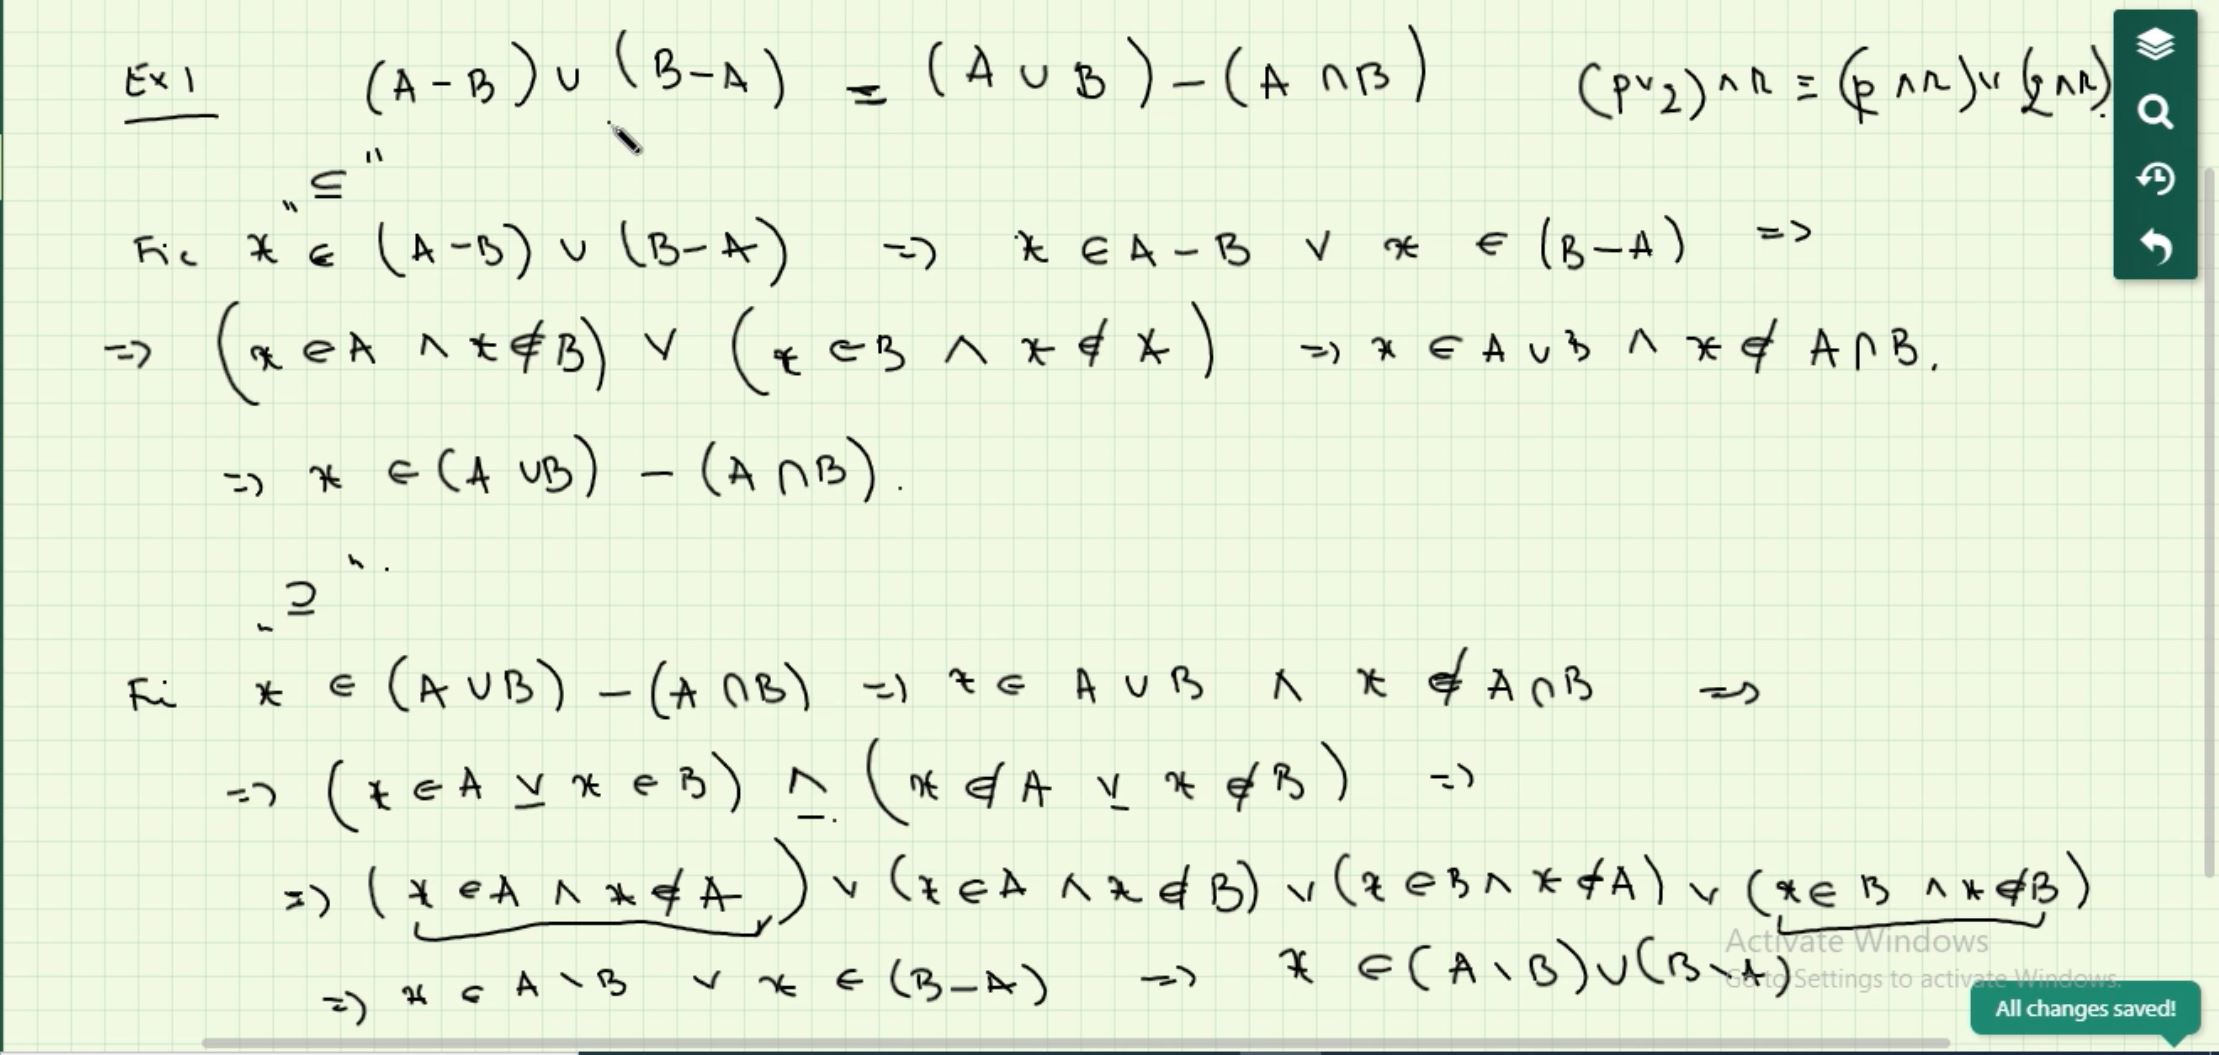 Ex 1 (A - B) ∪ (B - A) = (A ∪ B) - (A ∩ B) (p ∨ q) ∧ r ≡ (p ∧ r) ∨ (q ∧ r).
„⊆"
Fie x ∈ (A - B) ∪ (B - A) => x ∈ A - B ∨ x ∈ (B - A) =>
=> (x ∈ A ∧ x ∉ B) ∨ (x ∈ B ∧ x ∉ A) => x ∈ A ∪ B ∧ x ∉ A ∩ B.
=> x ∈ (A ∪ B) - (A ∩ B).
„⊇".
Fie x ∈ (A ∪ B) - (A ∩ B) => x ∈ A ∪ B ∧ x ∉ A ∩ B =>
=> (x ∈ A ∨ x ∈ B) ∧ (x ∉ A ∨ x ∉ B) =>
=> (x ∈ A ∧ x ∉ A) ∨ (x ∈ A ∧ x ∉ B) ∨ (x ∈ B ∧ x ∉ A) ∨ (x ∈ B ∧ x ∉ B)
=> x ∈ A \ B ∨ x ∈ (B - A) => x ∈ (A \ B) ∪ (B \ A)
Activate Windows
Go to Settings to activate Windows.
All changes saved!